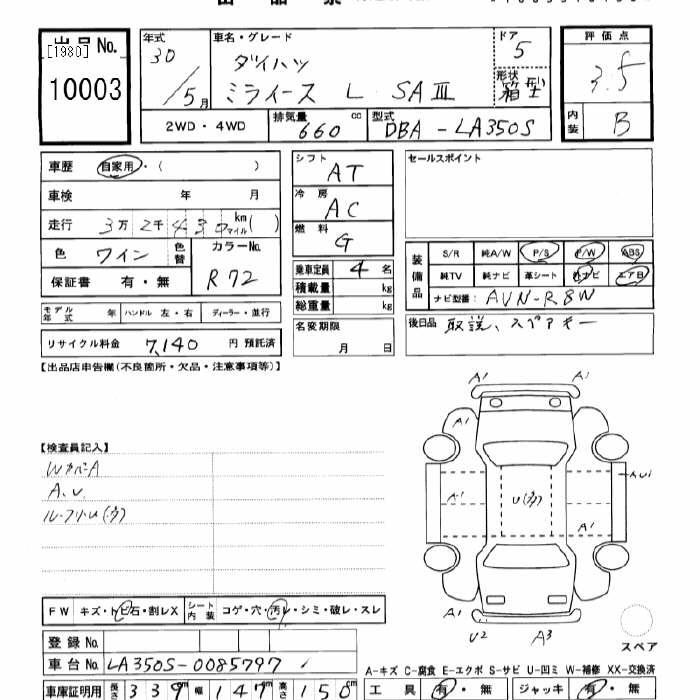 出品No.
[1980]
10003
年式
30
/5月
車名・グレード
ダイハツ
ミライース L SAⅢ
ドア
5
形状
箱型
評価点
3.5
内装
B
2WD・4WD
排気量 660 cc
型式 DBA-LA350S
車歴 自家用・( )
車検 年 月
走行 3万 2千 4 3 0 km マイル ( )
色 ワイン 色替
カラーNo. R72
保証書 有・無
シフト AT
冷房 AC
燃料 G
乗車定員 4 名
積載量 kg
総重量 kg
セールスポイント
装備品
S/R 純A/W P/S P/W ABS
純TV 純ナビ 革シート 外ナビ エアB
ナビ型番: AVN-R8W
モデル年式 年 ハンドル 左・右 ディーラー・並行
名変期限
月 日
後日品 取説、スペアキー
リサイクル料金 7,140 円 預託済
【出品店申告欄(不良箇所・欠品・注意事項等)】
【検査員記入】
WカバーA
A.U
ルーフU(歩)
A1
A1
A1
A1
A1
AU1
U(歩)
A1
U2
A3
スペア
FW キズ・トビ石・割レX
シート内装 コゲ・穴・汚レ・シミ・破レ・スレ
登録No.
車台No. LA350S-0085797
A-キズ C-腐食 E-エクボ S-サビ U-凹ミ W-補修 XX-交換済
車庫証明用 長さ 339 cm 幅 147 cm 高さ 150 cm
工具 有・無 ジャッキ 有・無